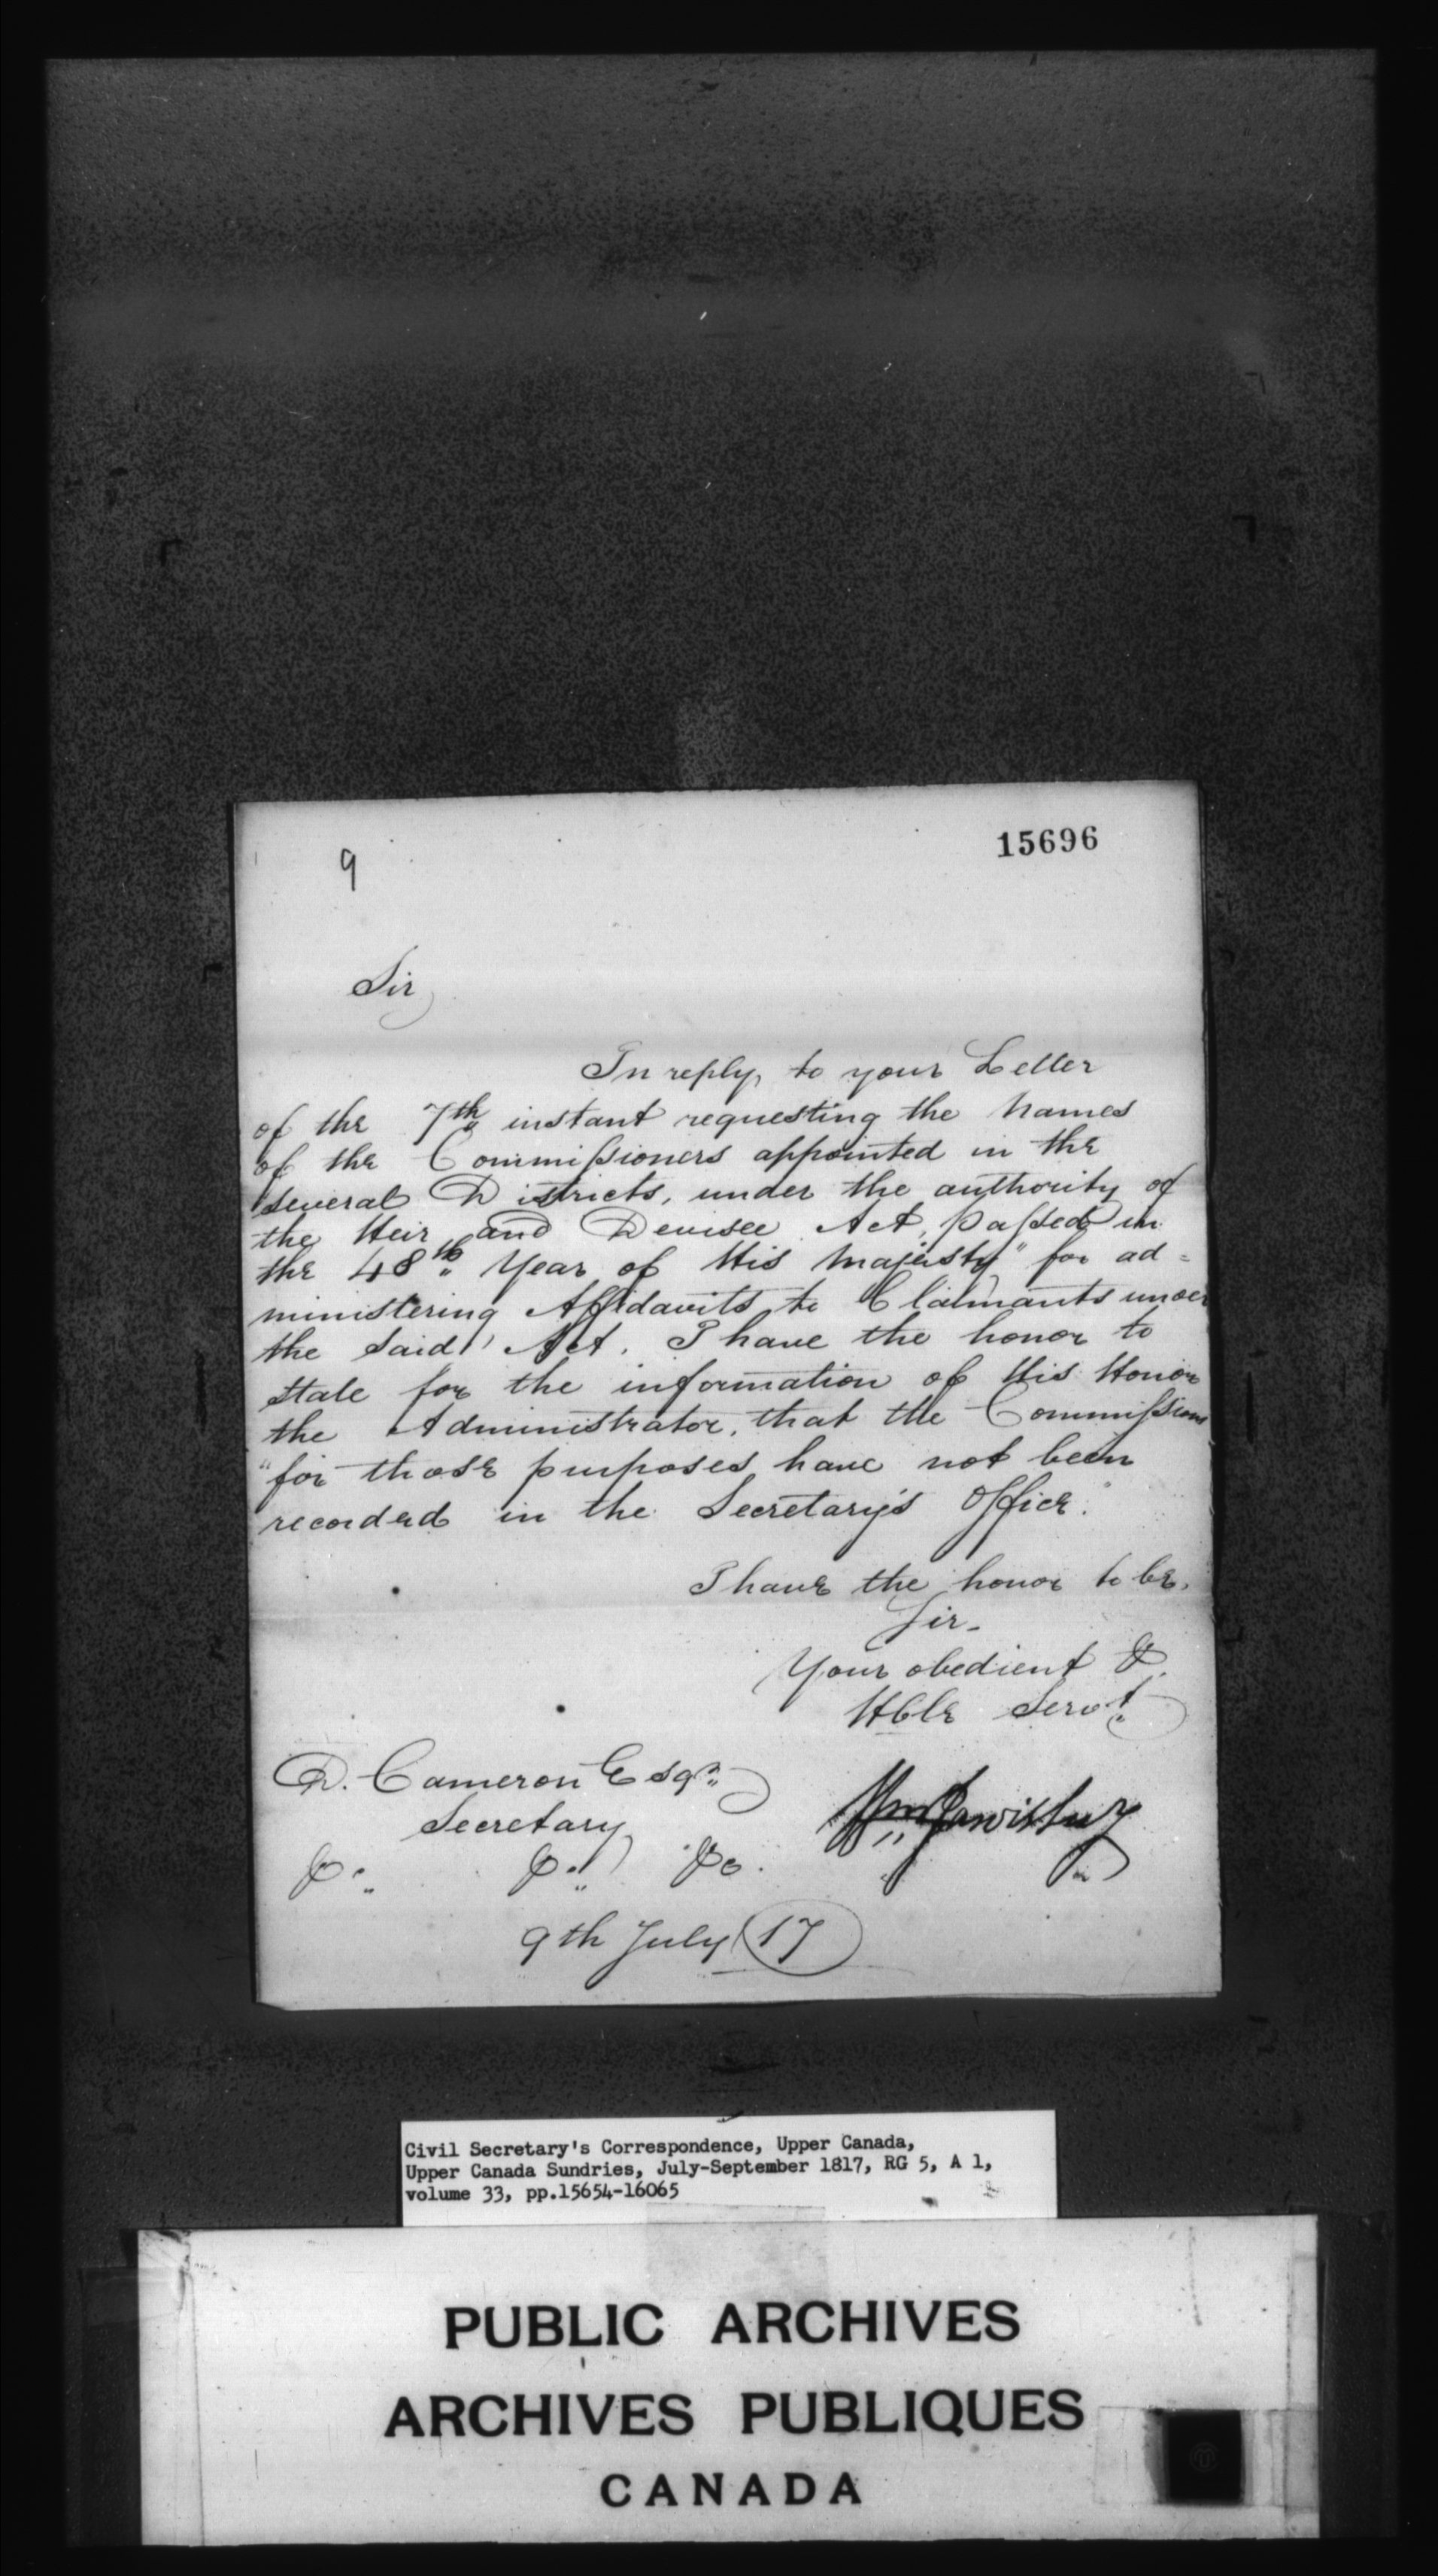 15696
9
Sir
In reply, to your Letter
of the 7th instant requesting the names
of the Commissioners appointed in the
several Districts, under the authority of
the Heir and Devisee Act, passed in
the 48th Year of His Majesty" for ad=
ministering Affidavits to Claimants under
the said Act. I have the honor to
state for the information of His Honor
the Administrator, that the Commissions
"for those purposes have not been
recorded in the Secretary's Office."
I have the honor to be,
Sir.
Your obedient &
Hble Servt
D. Cameron Esqr
Secretary
& & &c.
Wm Jarvis Secy
9th July 17
Civil Secretary's Correspondence, Upper Canada,
Upper Canada Sundries, July-September 1817, RG 5, A 1,
volume 33, pp.15654-16065
PUBLIC ARCHIVES
ARCHIVES PUBLIQUES
CANADA